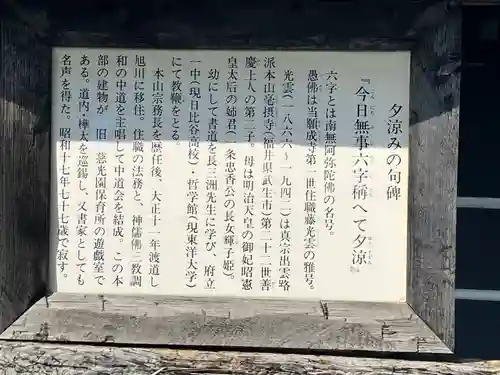 夕涼みの句碑
『今日無事六字稱へて夕涼』
六字とは南無阿弥陀佛の名号。
愚佛は当願成寺第一世住職藤光雲の雅号。
光雲(一八六六〜一九四二)は真宗出雲路
派本山毫摂寺(福井県武生市)第二十二世善
慶上人の第三子。母は明治天皇の御妃昭憲
皇太后の姉君(一条忠香公の長女輝子姫)。
幼にして書道を長三洲先生に学び、府立
一中(現日比谷高校)・哲学館(現東洋大学)
にて教鞭をとる。
本山宗務長を歴任後、大正十二年渡道し
旭川に移住。住職の法務と、神儒佛三教調
和の中道を主唱して中道会を結成。この本
部の建物が 旧 慈光園保育所の遊戯室で
ある。道内・樺太を巡錫し、又書家としても
名声を得た。昭和十七年七十七歳で寂す。